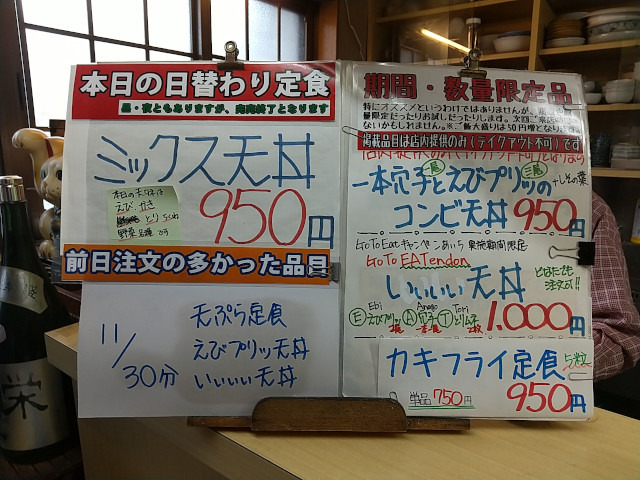 本日の日替わり定食
昼・夜ともありますが、完売終了となります
ミックス天丼
本日の天ぷらは
えび、かき
とり
野菜
950円
前日注文の多かった品目
11/30分
天ぷら定食
えびプリッ天丼
いいぃい天丼
期間・数量限定品
特にオススメというわけではありませんが、
量限定だったりお試しだったりします。次回ご来店
ないかもしれません。※ご飯大盛りは50円増となります
掲載品目は店内提供のみ(テイクアウト不可)です
一尾 三尾
一本穴子とえびプリッの +しその葉
コンビ天丼 950円
GoToEatキャンペーンあいち 実施期間限定
GoTo EATendon
いいぃい天丼
どなたでも
注文可!!
Ebi Anago Tori
Ⓔえびプリッ Ⓐ穴子 Ⓣとりム子
1.000円
カキフライ定食 5粒
単品750円
950円
栄